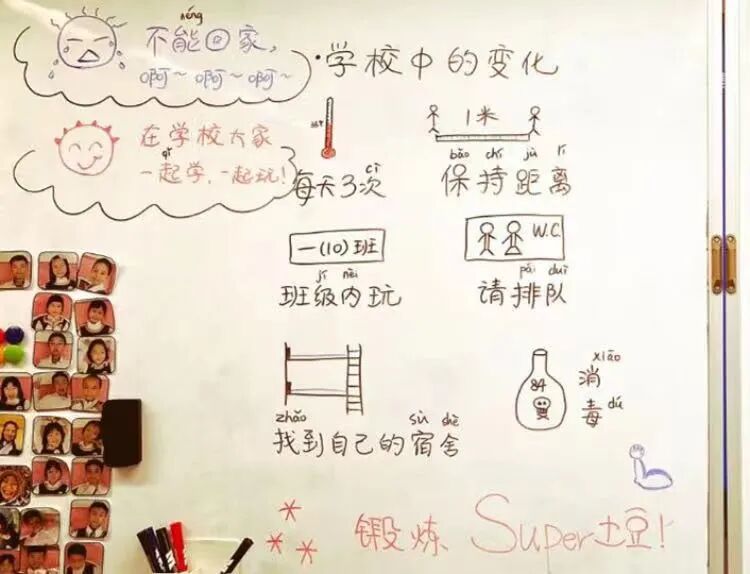 néng
不能回家，
啊～啊～啊～
在学校大家
qǐ
一起学，一起玩！
·学校中的变化
cì
每天3次
1米
bǎo chí jù lí
保持距离
一(10)班
jí nèi
班级内玩
W.C
pái duì
请排队
zhǎo sù shè
找到自己的宿舍
84
xiāo
消
毒 dú
锻炼 Super土豆！